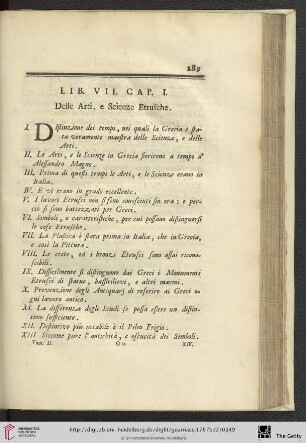 289
LIB. VII. CAP. I.
Delle Arti, e Scienze Etrusche.
I. DIstinzione dei tempi, nei quali la Grecia è sta-
ta veramente maestra delle Scienze, e delle
Arti.
II. Le Arti, e le Scienze in Grecia fiorirono a tempo d'
Alessandro Magno.
III. Prima di questi tempi le Arti, e le Scienze erano in
Italia.
IV. E vi erano in gradi eccellente.
V. I lavori Etrusci non si sono conosciuti fin ora; e per-
ciò si sono battezzati per Greci.
VI. Simboli, e caratteristiche, per cui possono distinguersi
le cose Etrusche.
VII. La Plastica è stata prima in Italia, che in Grecia,
e così la Pittura.
VIII. Le crete, ed i bronzi Etrusci sono assai ricono-
scibili.
IX. Difficilmente si distinguono dai Greci i Monumenti
Etrusci di statue, bassirilievi, e altri marmi.
X. Prevenzione degli Antiquarj di riferire ai Greci o-
gni lavoro antico.
XI. La differenza degli Scudi se possa essere un distin-
tivo sufficiente.
XII. Distintivo più notabile è il Pileo Frigio.
XIII Siccome pure l'antichità, e oscurità dei Simboli.
Tom. II. Oo XIV.
http://digi.ub.uni-heidelberg.de/diglit/guarnacci1767bd2/0349
© Universitätsbibliothek Heidelberg
The Getty